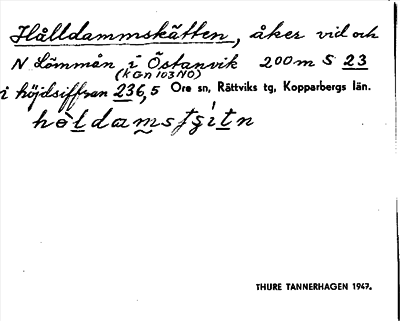 Hålldammskätten, åker vid och
N Lömmån i Östanvik 200 m S 23
(kGn 103 NO)
i höjdsiffran 236,5 Ore sn, Rättviks tg, Kopparbergs län.
THURE TANNERHAGEN 1947.